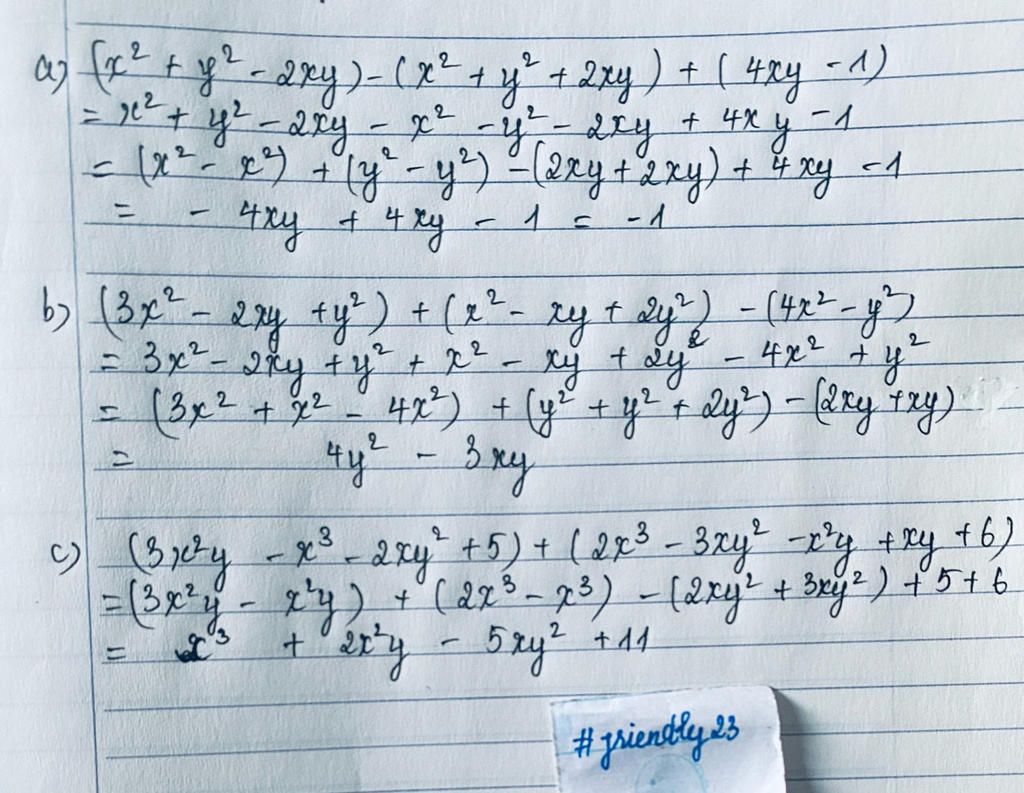 a) (x² + y² - 2xy) - (x² + y² + 2xy) + (4xy - 1)
= x² + y² - 2xy - x² - y² - 2xy + 4xy - 1
= (x² - x²) + (y² - y²) - (2xy + 2xy) + 4xy - 1
= - 4xy + 4xy - 1 = -1
b) (3x² - 2xy + y²) + (x² - xy + 2y²) - (4x² - y²)
= 3x² - 2xy + y² + x² - xy + 2y² - 4x² + y²
= (3x² + x² - 4x²) + (y² + y² + 2y²) - (2xy + xy)
= 4y² - 3xy
c) (3x²y - x³ - 2xy² + 5) + (2x³ - 3xy² - x²y + xy + 6)
= (3x²y - x²y) + (2x³ - x³) - (2xy² + 3xy²) + 5 + 6
= x³ + 2x²y - 5xy² + 11
#friendly23